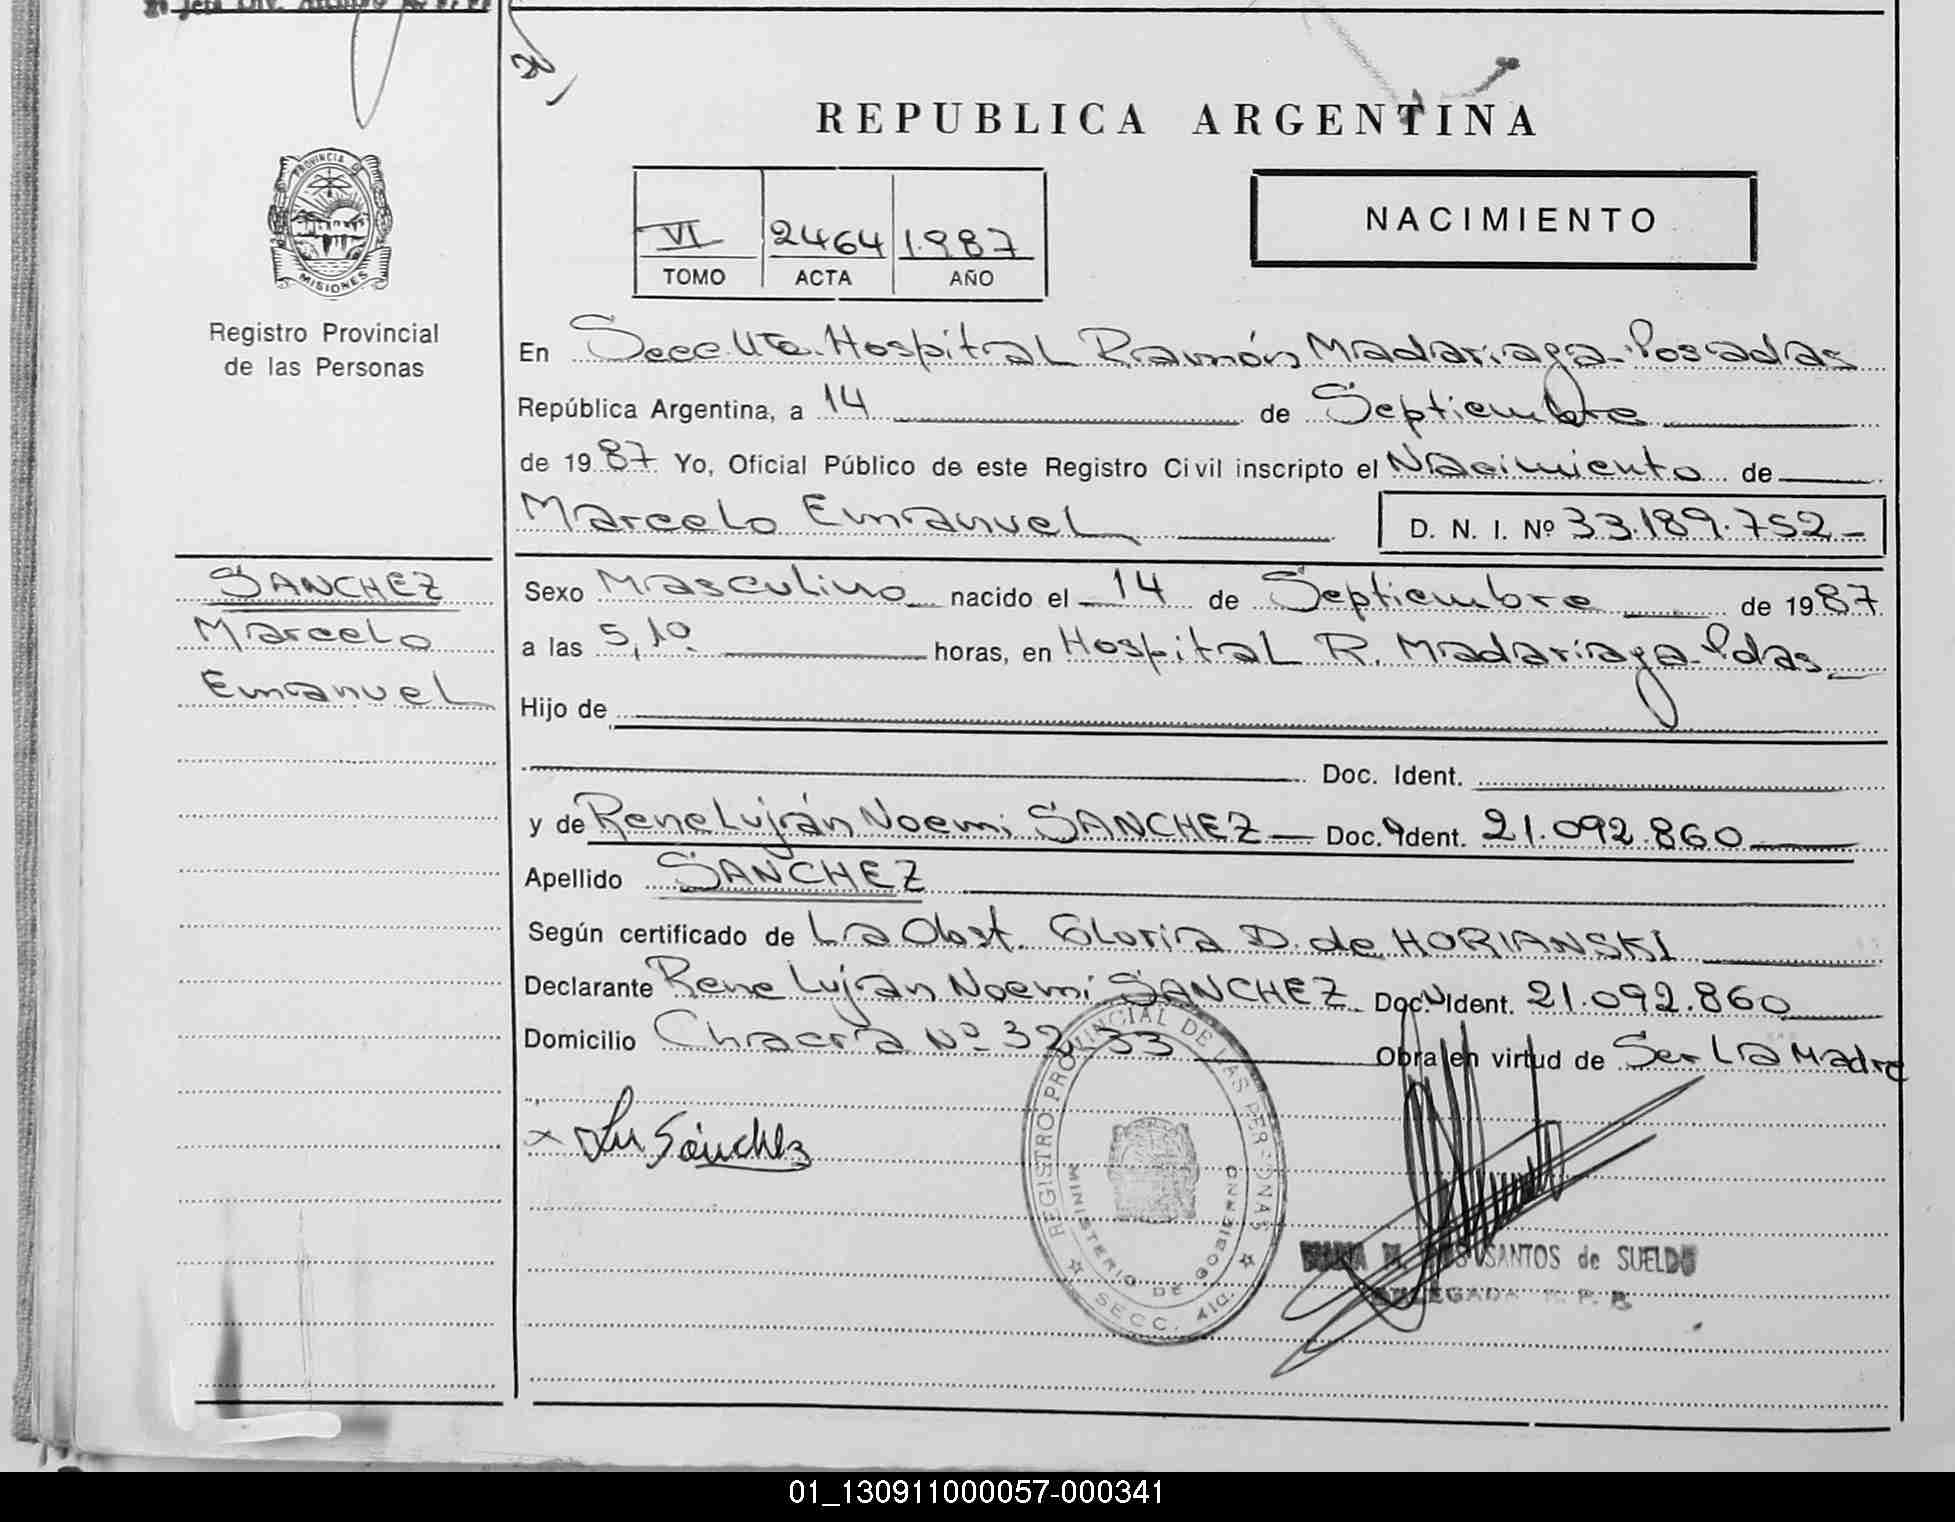 REPUBLICA ARGENTINA
PROVINCIA DE
MISIONES
Registro Provincial
de las Personas
VI 2464 1987
TOMO ACTA AÑO
NACIMIENTO
En Secc. 4ta. Hospital Ramón Madariaga - Posadas
República Argentina, a 14 de Septiembre
de 1987 Yo, Oficial Público de este Registro Civil inscripto el Nacimiento de
Marcelo Emanuel D. N. I. Nº 33.189.752
SANCHEZ
Marcelo
Emanuel
Sexo Masculino nacido el 14 de Septiembre de 1987
a las 5,10 horas, en Hospital R. Madariaga - Pdas
Hijo de
Doc. Ident.
y de Rene Luján Noemi SANCHEZ Doc. Ident. 21.092.860
Apellido SANCHEZ
Según certificado de La Obst. Gloria D. de HORIANSKI
Declarante Rene Luján Noemi SANCHEZ Doc. Ident. 21.092.860
Domicilio Chacra Nº 32-33 Obra en virtud de Ser La Madre
x Lu Sánchez
REGISTRO PROVINCIAL DE LAS PERSONAS
MINISTERIO DE GOBIERNO
SECC. 4ta.
SANTOS de SUELDO
DELEGADA R. P. P.
01_130911000057-000341